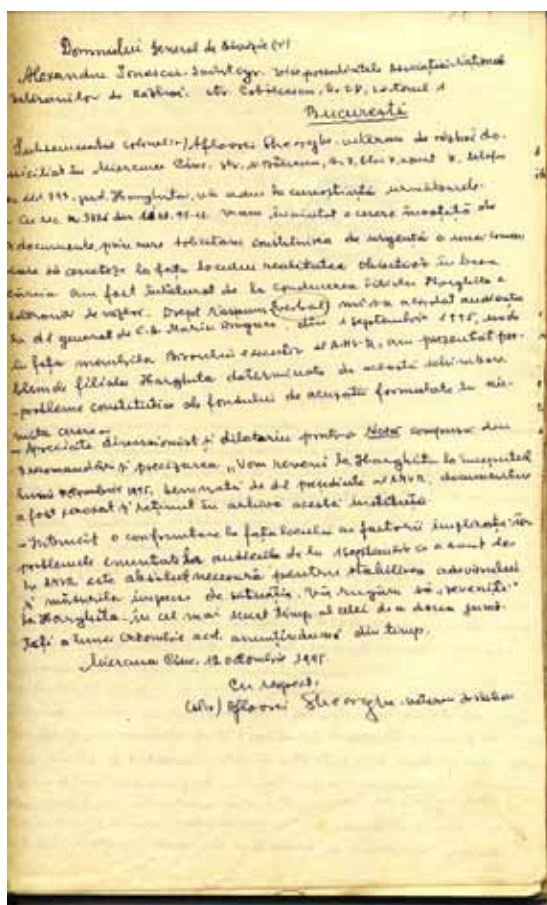 Domnului General de Divizie (r)
Alexandru Ionescu-Saint Cyr. Vicepreşedintele Asociaţiei Naţionale
Veteranilor de Război. str. nr. 28, sectorul 1
Bucureşti
Subsemnatul colonel (r) Afloarei Gheorghe, veteran de război do-
miciliat în Miercurea Ciuc. str. N. Bălcescu, telefon
jud. Harghita, vă aduc la cunoştinţă următoarele.
- Cu rec. nr. din v-am înaintat o cerere însoţită de
documente, prin care solicitam constituirea de urgenţă a unei comisii
care să cerceteze la faţa locului realitatea obiectivă în baza
căreia am fost înlăturat de la conducerea filialei Harghita a
veteranilor de război. Drept răspuns (verbal) mi s-a acordat audienţă
la dl general de C.A. Marin Dragnea din 1 septembrie 1995, unde
în faţa membrilor Biroului executiv al A.N.V.R. am prezentat pro-
blemele filialei Harghita determinate de această schimbare
- probleme constitutive ale fondului de acuzaţii formulate în
cerere -
- Apreciate diversionist şi dilatoriu printr-o compusă din
recomandări şi precizarea „Vom reveni la Harghita la începutul
lunii octombrie 1995, semnată de dl preşedinte al ANVR, documentul
a fost şi reţinut în arhiva acestei instituţii
- Întrucît o confruntare la faţa locului cu factorii implicaţi în
problemele audienţei de la 1 septembrie a.c. a avut loc
la ANVR este absolut necesară pentru stabilirea adevărului
şi măsurile impuse de situaţie. Vă rugăm să „reveniţi”
la Harghita în cel mai scurt timp al celei de a doua jumă-
tăţi a lunii octombrie a.c. anunţîndu-mă din timp.
Miercurea Ciuc. 12 octombrie 1995
Cu respect.
Afloarei Gheorghe - veteran de război